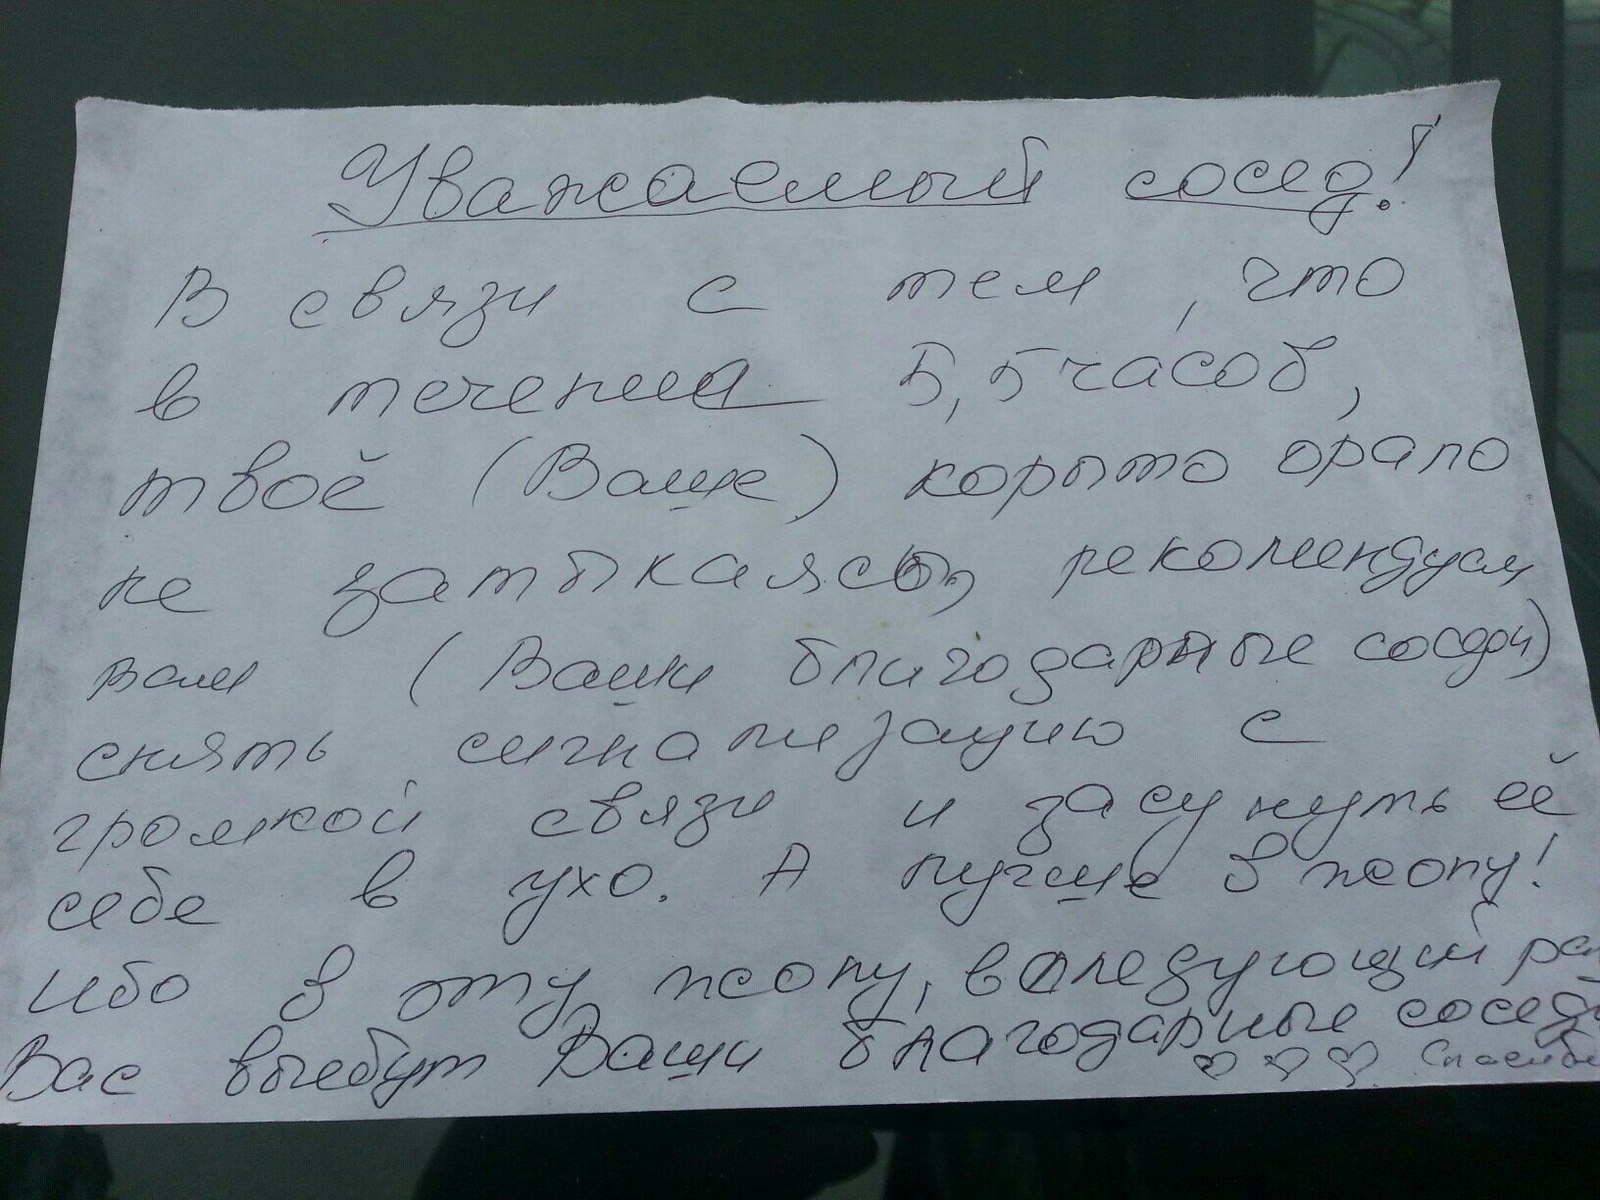 Уважаемый сосед!
В связи с тем, что
в течении 5,5 часов,
твоё (Ваше) корыто орало
не затыкаясь, рекомендуем
вам (Ваши благодарные соседи)
снять сигнализацию с
громкой связи и засунуть её
себе в ухо. А лучше в жопу!
Ибо в эту жопу, в следующий раз
Вас выебут Ваши благодарные соседи
♡ ♡ ♡ Спасибо